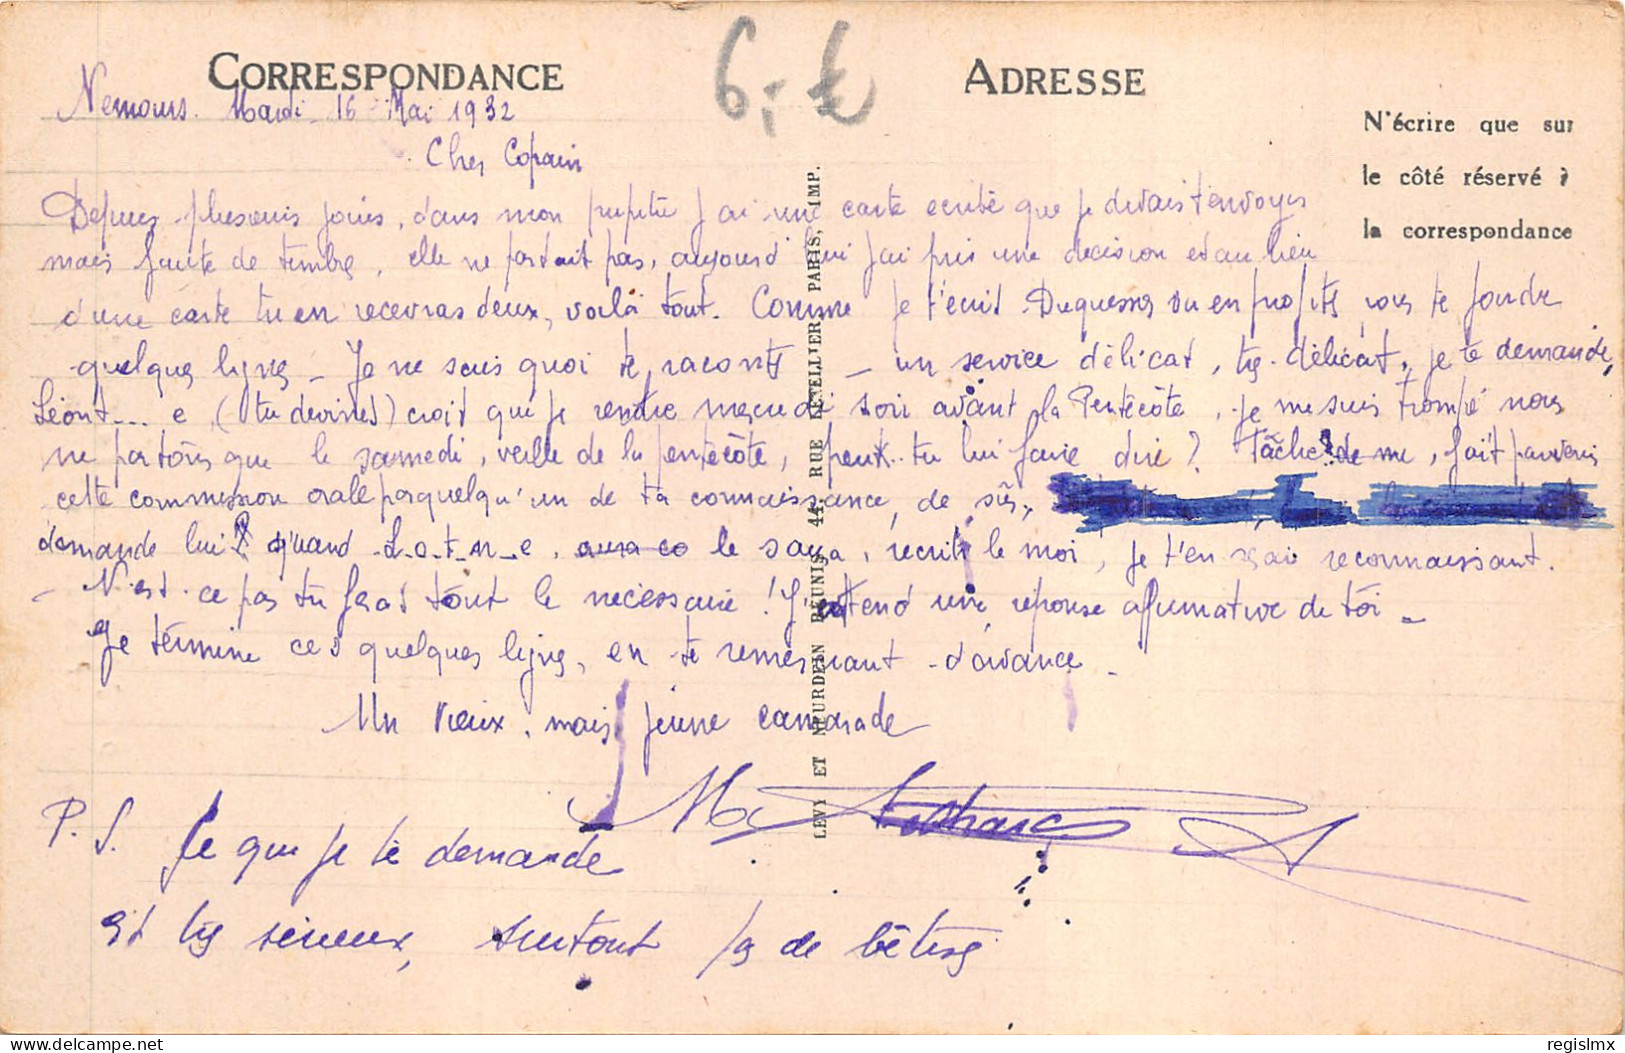 CORRESPONDANCE
6,- €
ADRESSE
N'écrire que sur
le côté réservé à
la correspondance
Nemours. Mardi 16 Mai 1932
Cher Copain
Depuis plusieurs jours, dans mon pupitre j'ai une carte écrite que je devais t'envoyer
mais faute de timbre, elle ne partait pas, aujourd'hui j'ai pris une décision et au lieu
d'une carte tu en recevras deux, voilà tout. Comme je t'écris Duquesses en profite pour te joindre
quelques lignes _ Je ne sais quoi te raconter _ un service délicat, très délicat, je te demande,
Léont.... e, (tu devines) croit que je rentre mercredi soir avant la Pentecôte, je me suis trompé nous
ne partons que le samedi, veille de la pentecôte, peux-tu lui faire dire ? Tâche de me, fait parvenir
cette commission orale par quelqu'un de ta connaissance, de sûr,
demande lui quand L_o_t_n_e, aura co le saura, récrit le moi, je t'en serai reconnaissant.
_ N'est-ce pas tu feras tout le nécessaire ! J'attend une réponse affirmative de toi _
Je termine ces quelques lignes, en te remerciant d'avance _
Un vieux, mais jeune camarade
P.S. Ce que je te demande
est très sérieux, surtout pas de bêtises
LEVY ET NEURDEIN RÉUNIS 44, RUE LETELLIER PARIS, IMP.
delcampe.net
regislmx